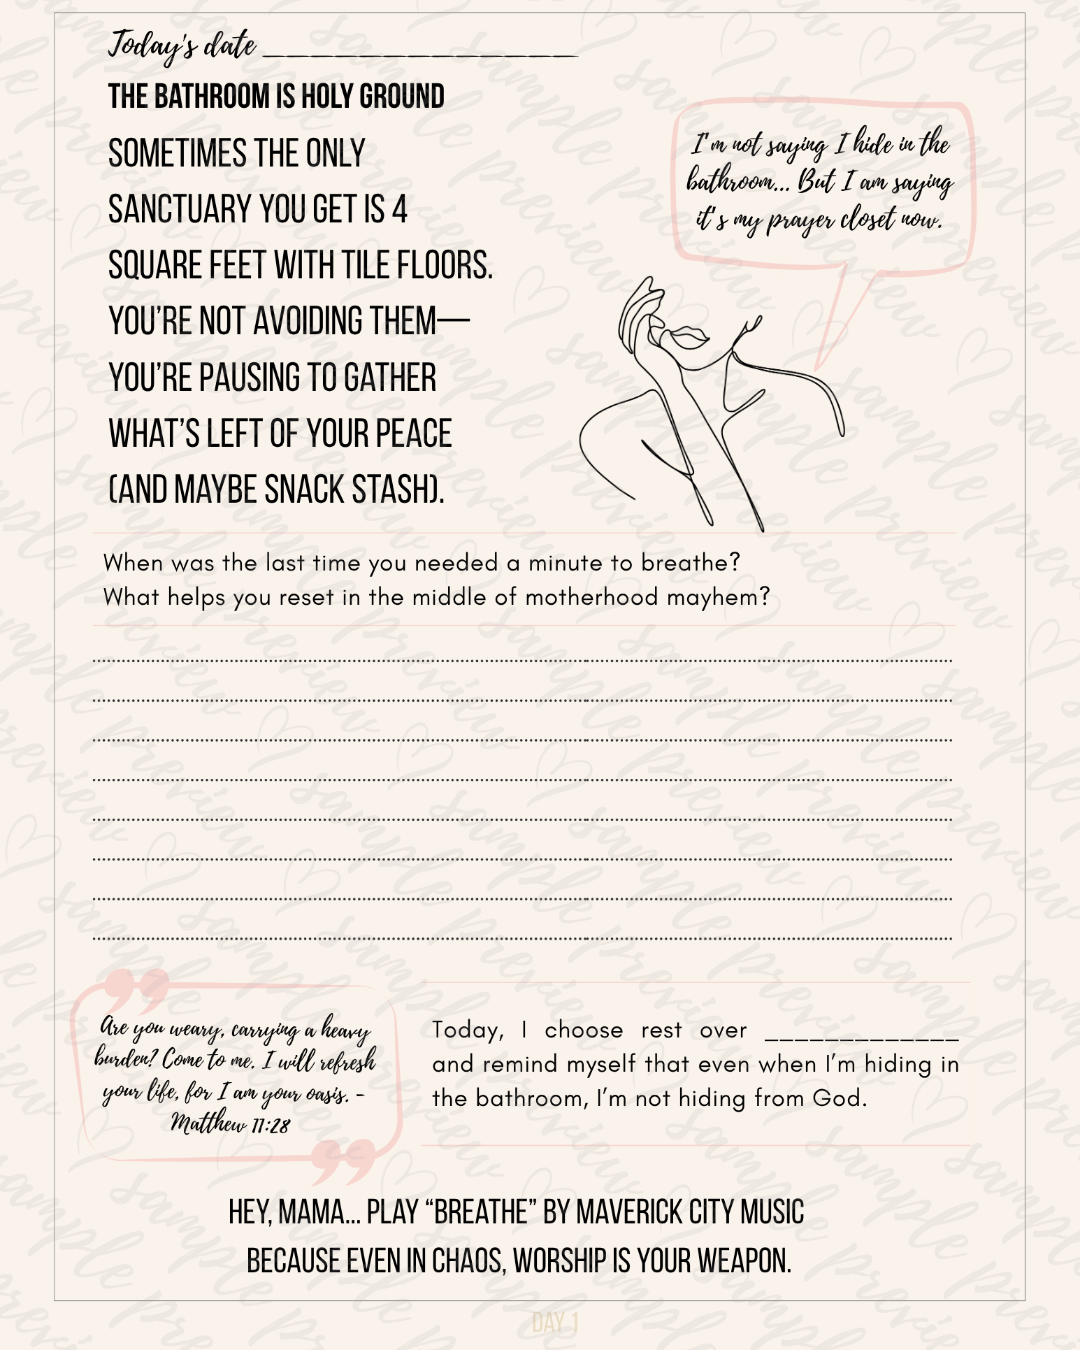 Today's date _______________
THE BATHROOM IS HOLY GROUND
SOMETIMES THE ONLY
SANCTUARY YOU GET IS 4
SQUARE FEET WITH TILE FLOORS.
YOU'RE NOT AVOIDING THEM—
YOU'RE PAUSING TO GATHER
WHAT'S LEFT OF YOUR PEACE
(AND MAYBE SNACK STASH).
I'm not saying I hide in the
bathroom... But I am saying
it's my prayer closet now.
When was the last time you needed a minute to breathe?
What helps you reset in the middle of motherhood mayhem?
Are you weary, carrying a heavy
burden? Come to me. I will refresh
your life, for I am your oasis. -
Matthew 11:28
Today, I choose rest over _____________
and remind myself that even when I'm hiding in
the bathroom, I'm not hiding from God.
HEY, MAMA... PLAY “BREATHE” BY MAVERICK CITY MUSIC
BECAUSE EVEN IN CHAOS, WORSHIP IS YOUR WEAPON.
DAY 1
sample preview